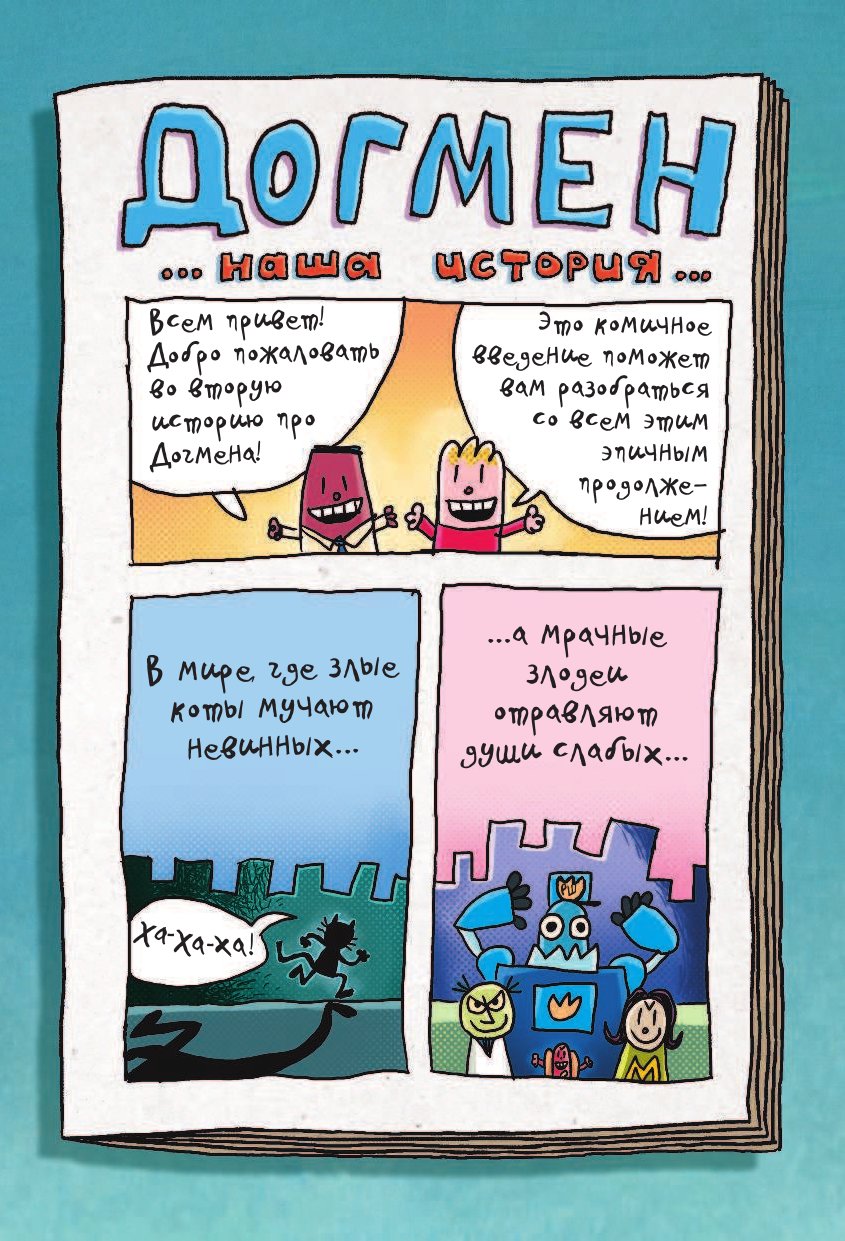 ДОГМЕН
...наша история...
Всем привет!
Добро пожаловать
во вторую
историю про
Догмена!
Это комичное
введение поможет
вам разобраться
со всем этим
эпичным
продолже-
нием!
В мире, где злые
коты мучают
невинных...
Ха-ха-ха!
...а мрачные
злодеи
отравляют
души слабых...
M